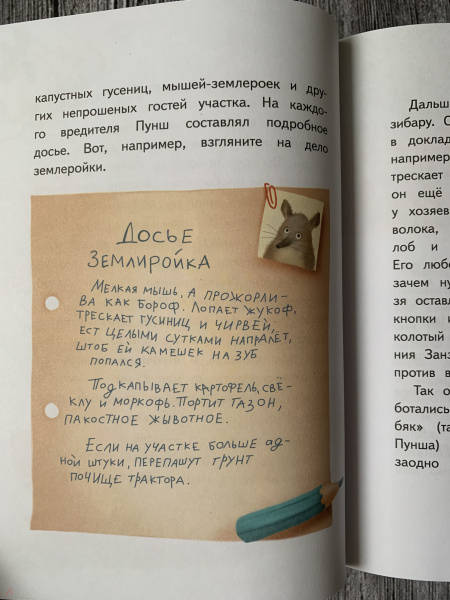 капустных гусениц, мышей-землероек и дру-
гих непрошеных гостей участка. На каждо-
го вредителя Пунш составлял подробное
досье. Вот, например, взгляните на дело
землеройки.
Досье
Землиройка
Мелкая мышь, а прожорли-
ва как бороф. Лопает жукоф,
трескает гусиниц и чирвей,
ест целыми сутками напралёт,
штоб ей камешек на зуб
попался.
Подкапывает картофель, свё-
клу и моркофь. Портит газон,
пакостное жывотное.
Если на участке больше ад-
ной штуки, перепашут грунт
почище трактора.
Дальш
зибару. С
в доклад
например
трескает
он ещё
у хозяев
волока,
лоб и
Его любо
зачем ну
зя оставл
кнопки и
колотый
ния Занз
против в
Так о
ботались
бяк» (та
Пунша)
заодно